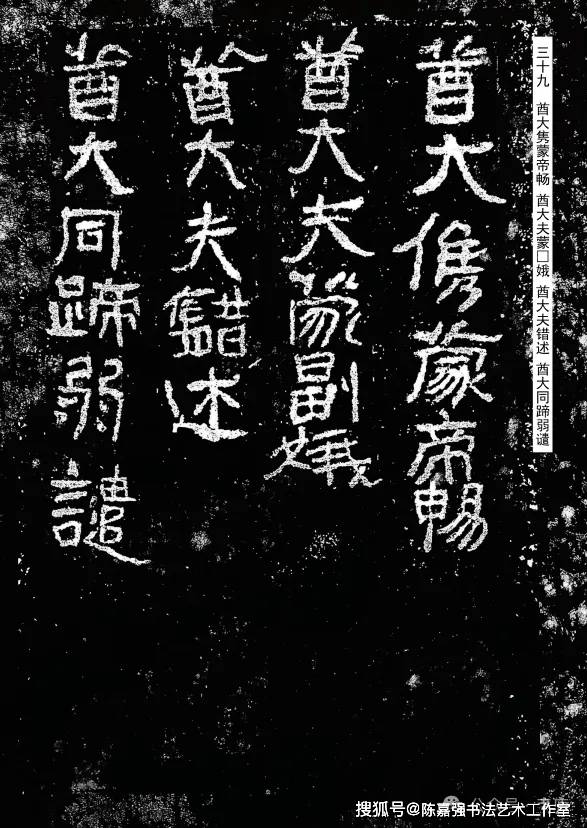 三十九 酋大隽蒙帝畅 酋大夫蒙□娥 酋大夫错述 酋大同蹄弱谴
酋大儁蒙帝暢
酋大夫蒙副娥
酋大夫述
酋大同蹄弱譴
搜狐号@陈嘉强书法艺术工作室